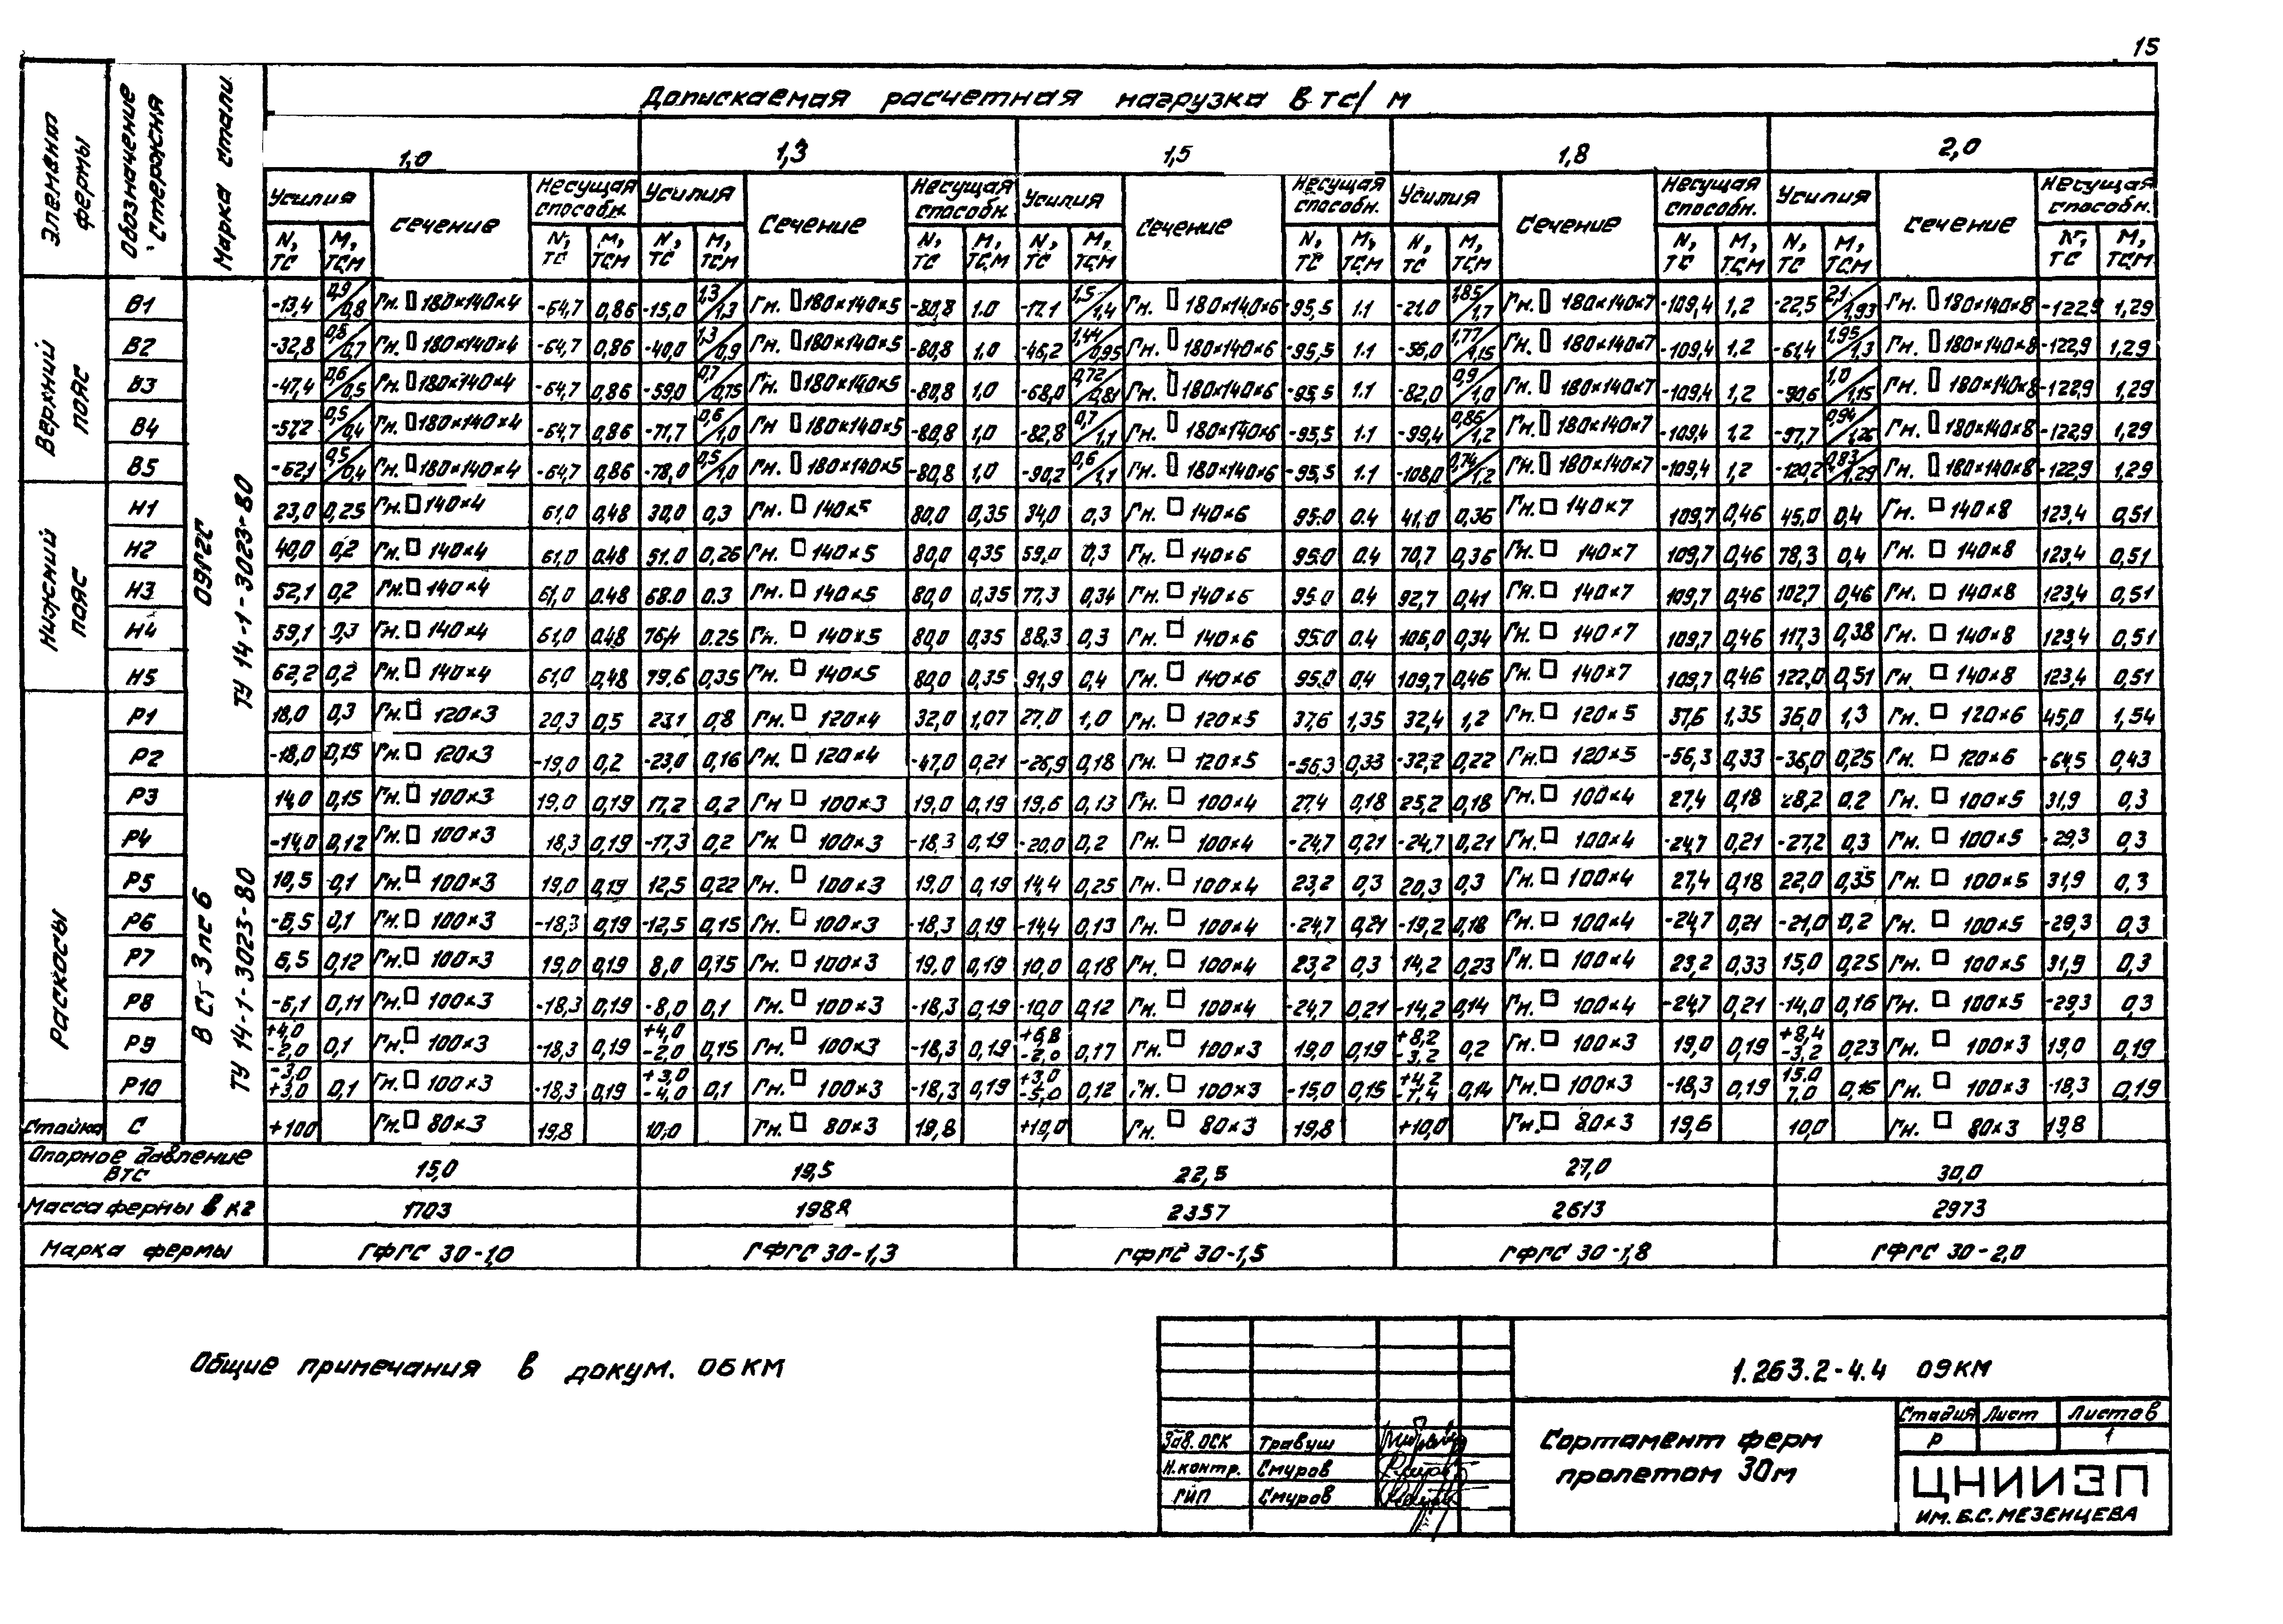 15
Элемент фермы
Обозначение стержня
Марка стали
Допускаемая расчетная нагрузка в тс/м
1,0 1,3 1,5 1,8 2,0
Усилия Сечение Несущая способн. Усилия Сечение Несущая способн. Усилия Сечение Несущая способн. Усилия Сечение Несущая способн. Усилия Сечение Несущая способн.
N, тс М, тсм N, тс М, тсм N, тс М, тсм N, тс М, тсм N, тс М, тсм N, тс М, тсм N, тс М, тсм N, тс М, тсм N, тс М, тсм N, тс М, тсм
Верхний пояс
Нижский пояс
Раскосы
09Г2С ТУ 14-1-3023-80
В Ст 3 пс 6 ТУ 14-1-3023-80
В1 -13,4 0,9/0,8 Гн. 180×140×4 -64,7 0,86 -15,0 1,3/1,3 Гн. 180×140×5 -80,8 1.0 -17.1 1,5/1,4 Гн. 180×140×6 -95,5 1.1 -21.0 1,85/1,7 Гн. 180×140×7 -109,4 1,2 -22,5 2,1/1,93 Гн. 180×140×8 -122,9 1,29
В2 -32,8 0,5/0,7 Гн. 180×140×4 -64,7 0,86 -40,0 1,3/0,9 Гн. 180×140×5 -80,8 1,0 -46,2 1,44/0,95 Гн. 180×140×6 -95,5 1.1 -56,0 1,77/1,15 Гн. 180×140×7 -109,4 1,2 -61,4 1,95/1,3 Гн. 180×140×8 -122,9 1,29
В3 -47,4 0,6/0,5 Гн. 180×140×4 -64,7 0,86 -59,0 0,7/0,75 Гн. 180×140×5 -80,8 1,0 -68,0 0,72/0,81 Гн. 180×140×6 -95,5 1.1 -82,0 0,9/1,0 Гн. 180×140×7 -109,4 1,2 -90,6 1,0/1,15 Гн. 180×140×8 -122,9 1,29
В4 -57,2 0,5/0,4 Гн. 180×140×4 -64,7 0,86 -71,7 0,6/1,0 Гн 180×140×5 -80,8 1,0 -82,8 0,7/1,1 Гн. 180×140×6 -95,5 1.1 -99,4 0,86/1,2 Гн. 180×140×7 -109,4 1,2 -97,7 0,94/1,26 Гн. 180×140×8 -122,9 1,29
В5 -62,1 0,5/0,4 Гн. 180×140×4 -64,7 0,86 -78,0 0,5/1,0 Гн. 180×140×5 -80,8 1,0 -90,2 0,6/1,1 Гн. 180×140×6 -95,5 1.1 -108,0 0,74/1,2 Гн. 180×140×7 -109,4 1,2 -120,2 0,83/1,29 Гн. 180×140×8 -122,9 1,29
Н1 23,0 0,25 Гн. 140×4 61,0 0,48 30,0 0,3 Гн. 140×5 80,0 0,35 34,0 0,3 Гн. 140×6 95.0 0.4 41,0 0,36 Гн. 140×7 109,7 0,46 45,0 0,4 Гн. 140×8 123,4 0,51
Н2 40,0 0,2 Гн. 140×4 61,0 0.48 51.0 0,26 Гн. 140×5 80,0 0,35 59,0 0,3 Гн. 140×6 95.0 0.4 70,7 0,36 Гн. 140×7 109,7 0,46 78,3 0,4 Гн. 140×8 123,4 0,51
Н3 52,1 0,2 Гн. 140×4 61,0 0.48 68.0 0.3 Гн. 140×5 80,0 0,35 77,3 0,34 Гн. 140×6 95.0 0.4 92,7 0,41 Гн. 140×7 109,7 0,46 102,7 0,46 Гн. 140×8 123,4 0,51
Н4 59,1 0,3 Гн. 140×4 61,0 0,48 76,4 0.25 Гн. 140×5 80,0 0,35 88,3 0,3 Гн. 140×6 95.0 0.4 106,0 0,34 Гн. 140×7 109,7 0,46 117,3 0,38 Гн. 140×8 123,4 0,51
Н5 62,2 0,2 Гн. 140×4 61,0 0,48 79,6 0,35 Гн. 140×5 80,0 0,35 91,9 0,4 Гн. 140×6 95.0 0,4 109,7 0,46 Гн. 140×7 109,7 0,46 122,0 0,51 Гн. 140×8 123,4 0,51
Р1 18,0 0,3 Гн. 120×3 20,3 0,5 23,1 0,8 Гн. 120×4 32,0 1,07 27,0 1,0 Гн. 120×5 37,6 1,35 32,4 1,2 Гн. 120×5 37,6 1,35 36,0 1,3 Гн. 120×6 45,0 1,54
Р2 -18,0 0,15 Гн. 120×3 -19,0 0,2 -23,0 0,16 Гн. 120×4 -47,0 0,21 -26,9 0,18 Гн. 120×5 -56,3 0,33 -32,2 0,22 Гн. 120×5 -56,3 0,33 -36,0 0,25 Гн. 120×6 -64,5 0,43
Р3 14,0 0,15 Гн. 100×3 19,0 0,19 17,2 0,2 Гн 100×3 19,0 0,19 19,6 0,13 Гн. 100×4 27,4 0,18 25,2 0,18 Гн. 100×4 27,4 0,18 28,2 0,2 Гн. 100×5 31,9 0,3
Р4 -14,0 0,12 Гн. 100×3 18,3 0,19 -17,3 0,2 Гн. 100×3 -18,3 0,19 -20,0 0,2 Гн. 100×4 -24,7 0,21 -24,7 0,21 Гн. 100×4 -24,7 0,21 -27,2 0,3 Гн. 100×5 -29,3 0,3
Р5 10,5 0,1 Гн. 100×3 19,0 0,19 12,5 0,22 Гн. 100×3 19,0 0,19 14,4 0,25 Гн. 100×4 23,2 0,3 20,3 0,3 Гн. 100×4 27,4 0,18 22,0 0,35 Гн. 100×5 31,9 0,3
Р6 -6,5 0,1 Гн. 100×3 -18,3 0,19 -12,5 0,15 Гн. 100×3 -18,3 0,19 -14,4 0,13 Гн. 100×4 -24,7 0,21 -19,2 0,18 Гн. 100×4 -24,7 0,21 -21,0 0,2 Гн. 100×5 -29,3 0,3
Р7 6,5 0,12 Гн. 100×3 19,0 0,19 8,0 0,15 Гн. 100×3 19,0 0,19 10,0 0,18 Гн. 100×4 23,2 0,3 14,2 0,23 Гн. 100×4 23,2 0,33 15,0 0,25 Гн. 100×5 31,9 0,3
Р8 -6,1 0,11 Гн. 100×3 -18,3 0,19 -8,0 0,1 Гн. 100×3 -18,3 0,19 -10,0 0,12 Гн. 100×4 -24,7 0,21 -14,2 0,14 Гн. 100×4 -24,7 0,21 -14,0 0,16 Гн. 100×5 -29,3 0,3
Р9 +4,0 -2,0 0,1 Гн. 100×3 -18,3 0,19 +4,0 -2,0 0,15 Гн. 100×3 -18,3 0,19 +6,8 -2,0 0,17 Гн. 100×3 19,0 0,19 +8,2 -3,2 0,2 Гн. 100×3 19,0 0,19 +8,4 -3,2 0,23 Гн. 100×3 19,0 0,19
Р10 -3,0 +3,0 0,1 Гн. 100×3 -18,3 0,19 +3,0 -4,0 0,1 Гн. 100×3 -18,3 0,19 +3,0 -5,0 0,12 Гн. 100×3 -15,0 0,15 +4,2 -7,4 0,14 Гн. 100×3 -18,3 0,19 15.0 7,0 0,16 Гн. 100×3 -18,3 0,19
Стойка С +100 Гн. 80×3 19,8 10,0 Гн. 80×3 19,8 +10,0 Гн. 80×3 19,8 +10,0 Гн. 80×3 19,6 10,0 Гн. 80×3 19,8
Опорное давление в тс 15,0 19,5 22,5 27,0 30,0
Масса фермы в кг 1703 1988 2357 2613 2973
Марка фермы ГФГС 30-1,0 ГФГС 30-1,3 ГФГС 30-1,5 ГФГС 30-1,8 ГФГС 30-2,0
Общие примечания в докум. 06КМ
1.263.2-4.4 09КМ
Зав. ОСК Травуш
Н.контр. Смуров
ГИП Смуров
Сортамент ферм пролетом 30м
Стадия Лист Листов
Р 1
ЦНИИЭП
ИМ. Б.С. МЕЗЕНЦЕВА